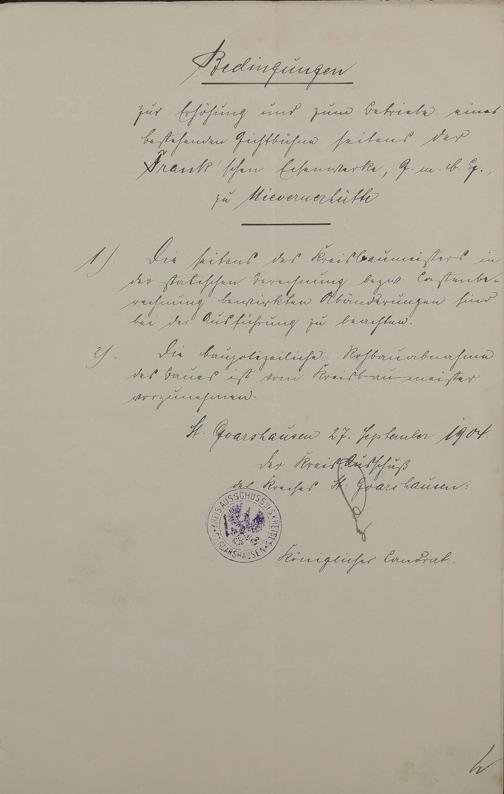 Bedingungen
zur Erhöhung und zum Betriebe eines
bestehenden Gichtbühne seitens der
Frank'schen Eisenwerke, G. m. b. H.,
zu Nievernerhütte
1). Die seitens des Kreisbaumeisters in
der statischen Berechnung bezw. Lastenbe-
rechnung bewirkten Abänderungen sind
bei der Ausführung zu beachten.
2). Die baupolizeiliche Rohbauabnahme
des Baues ist vom Kreisbaumeister
vorzunehmen.
St. Goarshausen 27. September 1904
Der Kreis Ausschuß
des Kreises St. Goarshausen:
KREIS AUSSCHUSS DES KREISES
ST. GOARSHAUSEN
Königlicher Landrat.